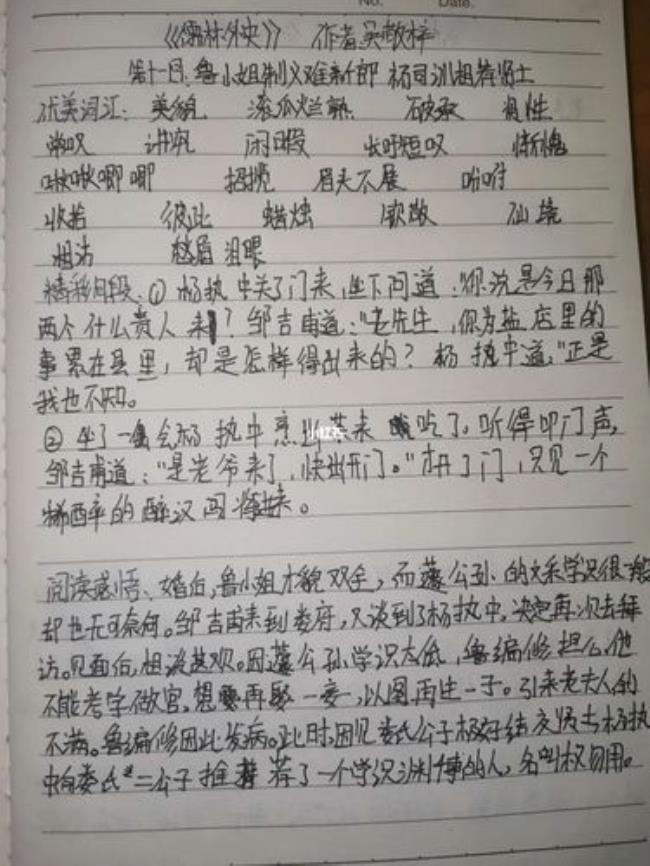 No. Date.
《儒林外史》 作者:吴敬梓
第十一回:鲁小姐制义难新郎 杨司训相荐贤士
优美词汇: 美貌 滚瓜烂熟 破承 根性
讲究 闲暇 长吁短叹 惭愧
啾啾唧唧 招揽 眉头不展 吩咐
收若 彼此 蜡烛 钦敬 仙境
相法 稀眉 泪眼
精彩片段:① 杨执中关了门来,坐下问道:"你说是今日那
两个什么贵人来?邹吉甫道:"老先生,你为盐店里的
事累在县里,却是怎样得出来的?杨执中道,"正是
我也不知。
② 坐了一会杨执中烹出茶来吃了。听得叩门声,
邹吉甫道:"是老爷来了,快出开门。"才开了门,只见一个
稀醉的醉汉闯进来。
小红书
阅读感悟、婚后,鲁小姐才貌双全,而蘧公孙的文采学识很一般
却也无可奈何。邹吉甫来到娄府,又谈到了杨执中,决定再次去拜
访。见面后,相谈甚欢。因蘧公孙学识太低,鲁编修担心他
不能考学做官,想要再娶一妾,以图再生一子。引来老夫人的
不满。鲁编修因此发病。此时,因见娄氏公子极好结交贤士杨执
中向娄氏二公子推荐了一个学识渊博的人,名叫权勿用。